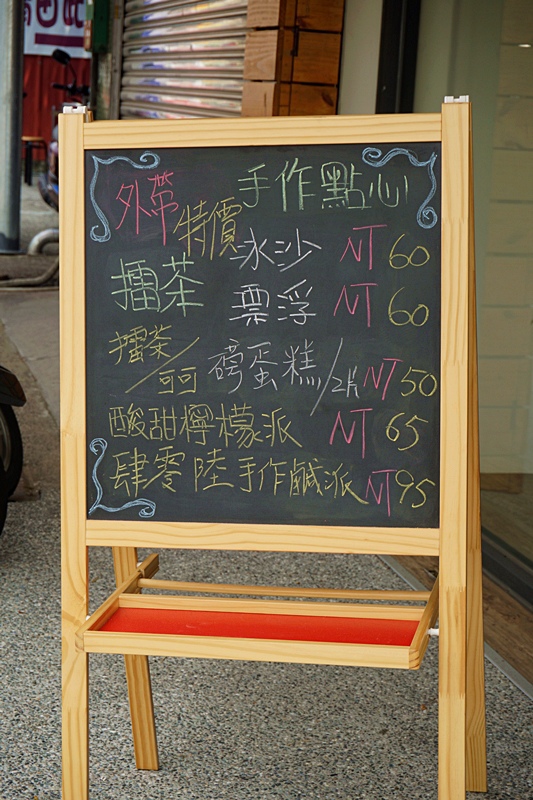 外帶 手作點心
特價
冰沙 NT 60
擂茶
票浮 NT 60
擂茶/可可 磅蛋糕/2片 NT50
酸甜檸檬派 NT 65
肆零陸手作鹹派 NT95